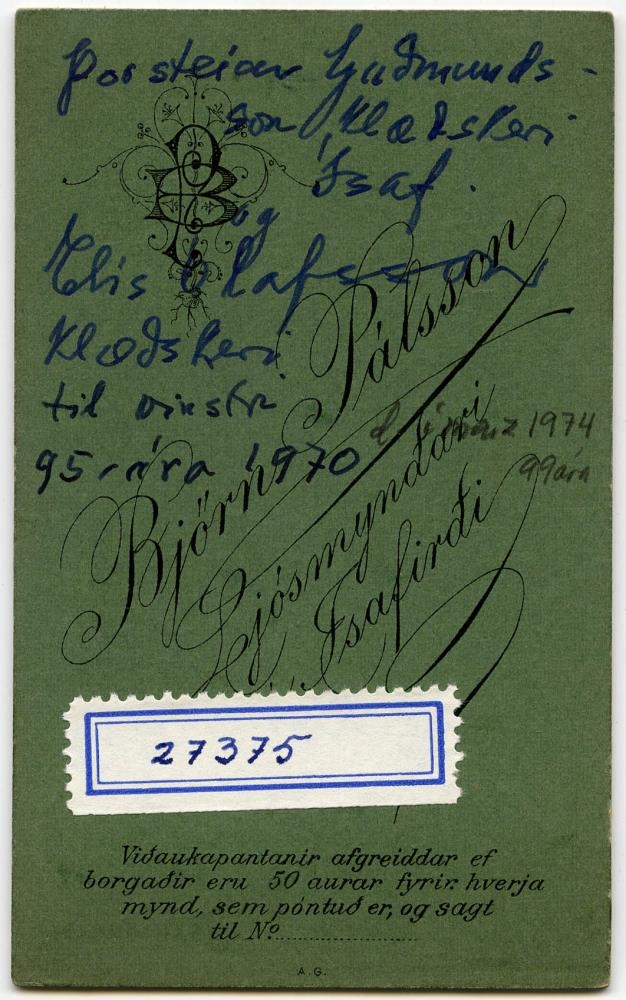 Þorsteinn Guðmunds-
son, Klæðskeri
Ísaf.
og
Elís Ólafsson
Klæðskeri
til vinstri
95 ára 1970
d. í marz 1974
99 ára
BP
Björn Pálsson
Ljósmyndari
Ísafirði
27375
Viðaukapantanir afgreiddar ef
borgaðir eru 50 aurar fyrir hverja
mynd, sem pöntuð er, og sagt
til No
A.G.